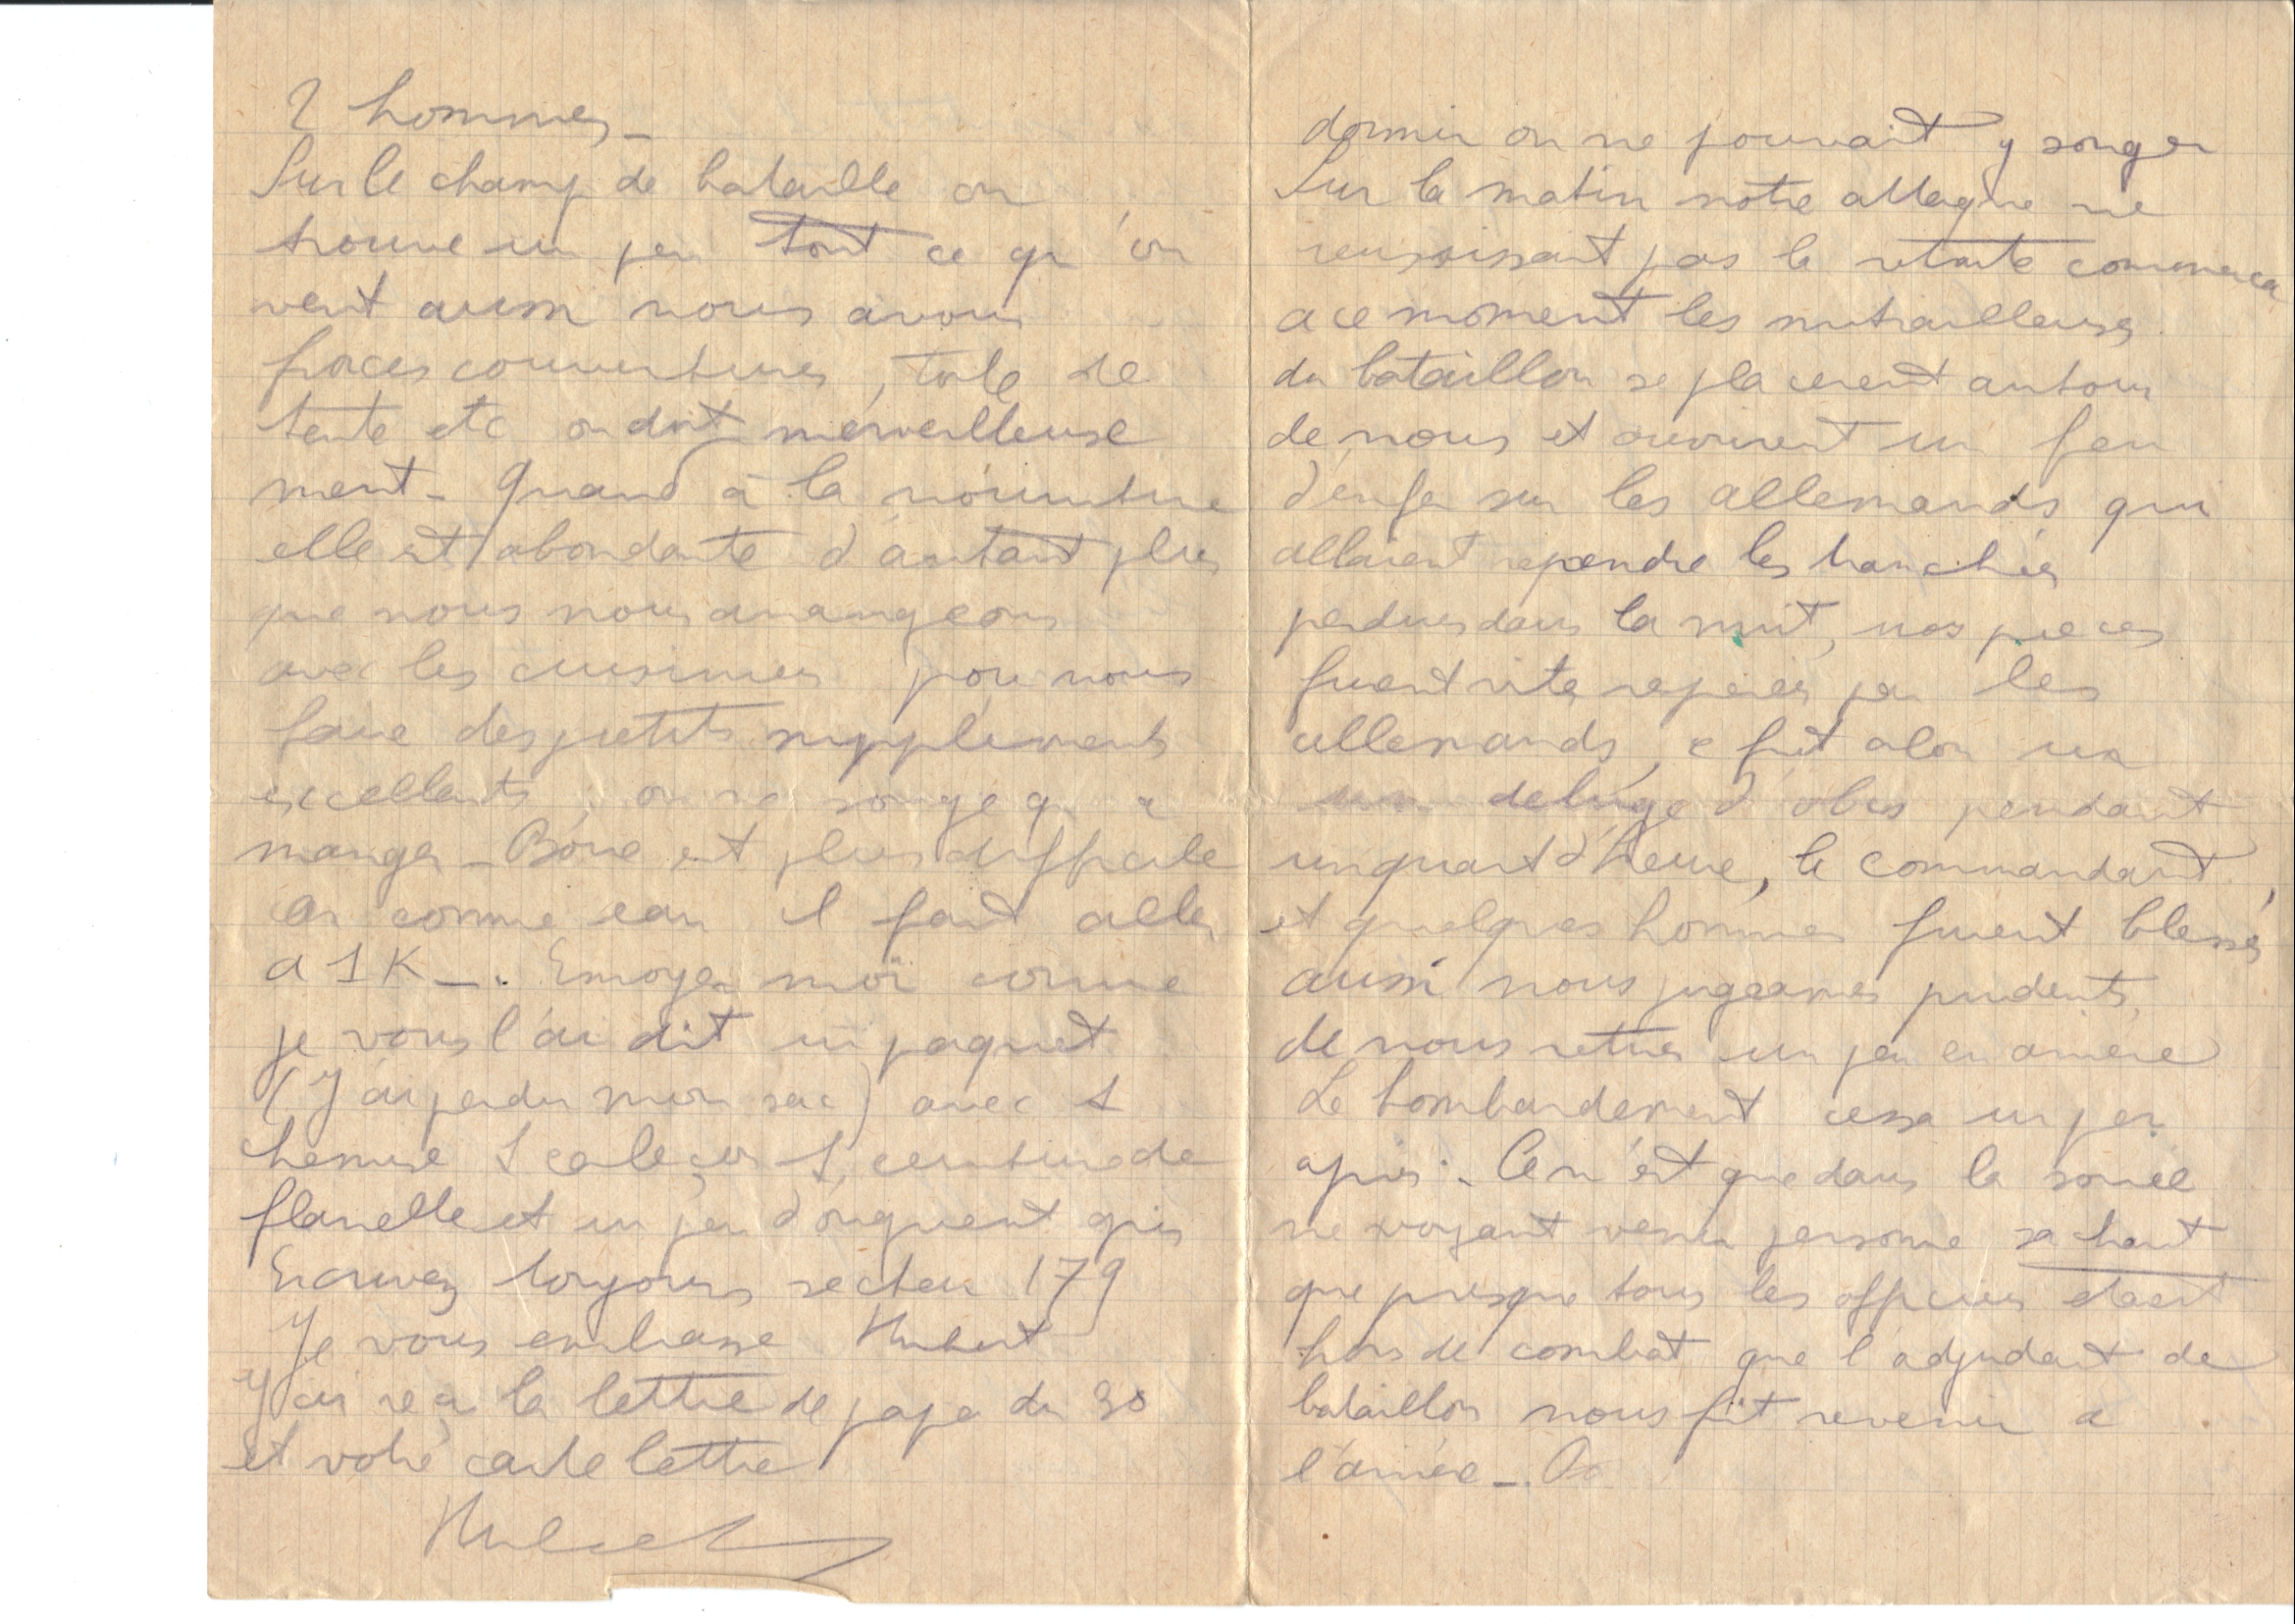 2 hommes –
Sur le champ de bataille on
trouve un peu tout ce qu'on
veut aussi nous avons
forces couvertures, toile de
tente etc on dort merveilleuse
ment – Quand à la nourriture
elle est abondante d'autant plus
que nous nous arrangeons
avec les cuisiniers pour nous
faire des petits supplements
excellents, on ne songe qu'a
manger – Boire est plus difficile
car comme eau il faut aller
a 1 K –. Envoyez moi comme
je vous l'ai dit un paquet
(J'ai perdu mon sac) avec 1
chemise 1 caleçon 1 ceinture de
flanelle et un peu d'onguent gris
Ecrivez toujours secteur 179
Je vous embrasse Hubert
J'ai reçu la lettre de papa du 30
et votre carte lettre
Hubert
dormir on ne pouvait y songer
Sur la matin notre attaque ne
reussissant pas la retraite commença
a ce moment les mitrailleuses
du bataillon se placerent autour
de nous et ouvrirent un feu
d'enfer sur les allemands qui
allaient reprendre les tranchées
perdues dans la nuit, nos pieces
furent vites reperées par les
allemands, ce fut alors un
un deluge d'obus pendant
un quart d'heure, le commandant,
et quelques hommes furent blessés
aussi nous jugeames prudents
de nous retirer un peu en arriere
Le bombardement cessa un peu
apres. Ce n'est que dans la soirée
ne voyant venir personne sachant
que presque tous les officiers etaient
hors de combat que l'adjudant de
bataillon nous fit revenir a
l'arriere –.